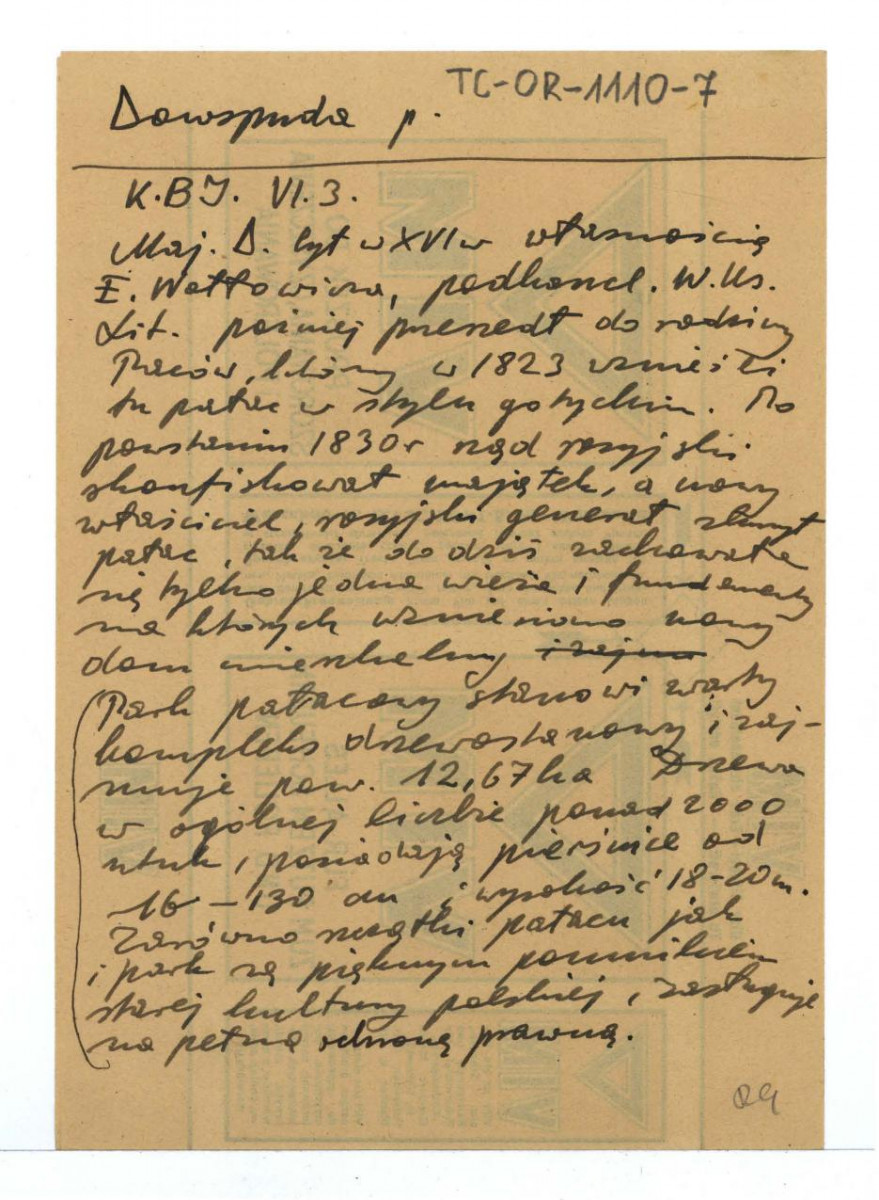 TC-OR-1110-7
Dowspuda p.
K.BJ. VI.3.
Maj. D. był w XVI w własnością
I. Wołłowicza, podkancl. W. Ks.
Lit. później przeszedł do rodziny
Paców, którzy w 1823 wznieśli
tu pałac w stylu gotyckim. Po
powstaniu 1830 r rząd rosyjski
skonfiskował majątek, a nowy
właściciel, rosyjski generał zburzył
pałac, tak że do dziś zachowała
się tylko jedna wieża i fundamenty
na których wzniesiono nowy
dom mieszkalny i zajmu
Park pałacowy stanowi zwarty
kompleks drzewostanowy i zaj-
muje pow. 12,67 ha Drzewa
w ogólnej liczbie ponad 2000
sztuk, posiadają pierśnice od
16 – 130 cm i wysokość 18-20 m.
Zarówno szczątki pałacu jak
i park są pięknym pomnikiem
starej kultury polskiej, zasługuje
na pełną ochronę prawną.